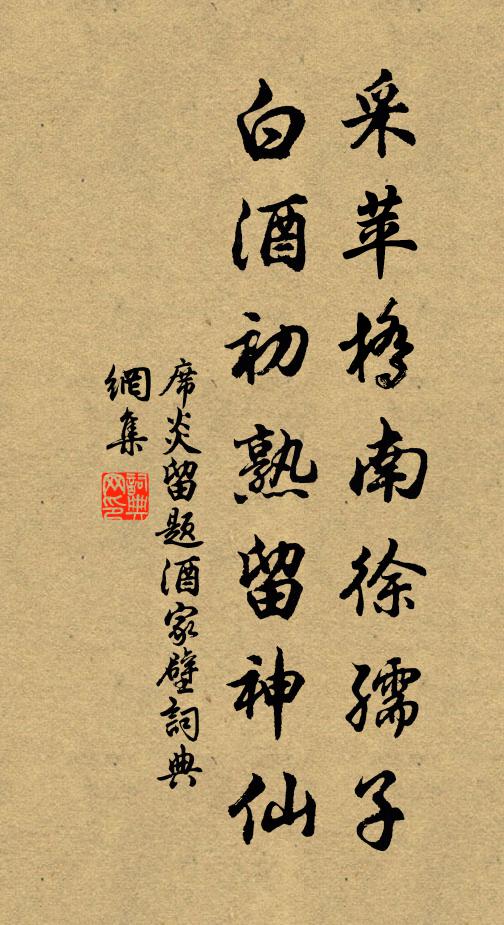 采苹橋南徐孺子
白酒初熟留神仙
席炎留题酒家壁詞典
網集
詞典
网印